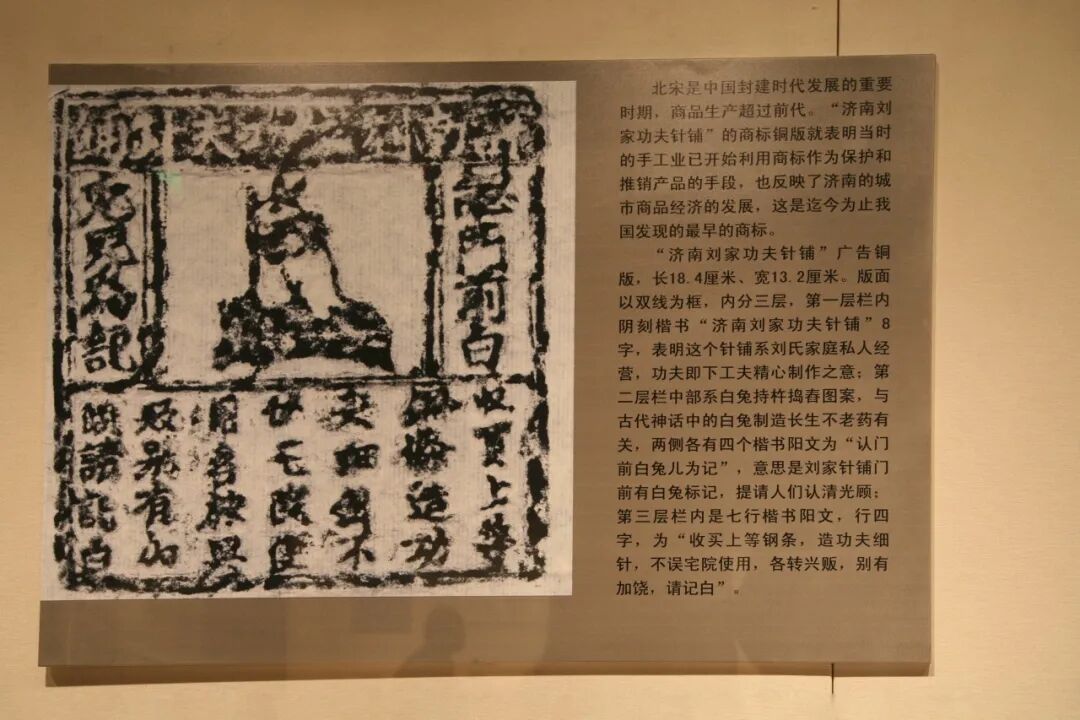 濟南劉家功夫針鋪
認門前白
兔兒為記
收買上等
鋼條造功
夫細針不
誤宅院使
用客轉與
販別有加
饒請記白
北宋是中国封建时代发展的重要
时期，商品生产超过前代。“济南刘
家功夫针铺”的商标铜版就表明当时
的手工业已开始利用商标作为保护和
推销产品的手段，也反映了济南的城
市商品经济的发展，这是迄今为止我
国发现的最早的商标。
“济南刘家功夫针铺”广告铜
版，长18.4厘米、宽13.2厘米。版面
以双线为框，内分三层，第一层栏内
阴刻楷书“济南刘家功夫针铺”8
字，表明这个针铺系刘氏家庭私人经
营，功夫即下工夫精心制作之意；第
二层栏中部系白兔持杵捣舂图案，与
古代神话中的白兔制造长生不老药有
关，两侧各有四个楷书阳文为“认门
前白兔儿为记”，意思是刘家针铺门
前有白兔标记，提请人们认清光顾；
第三层栏内是七行楷书阳文，行四
字，为“收买上等钢条，造功夫细
针，不误宅院使用，各转兴贩，别有
加饶，请记白”。